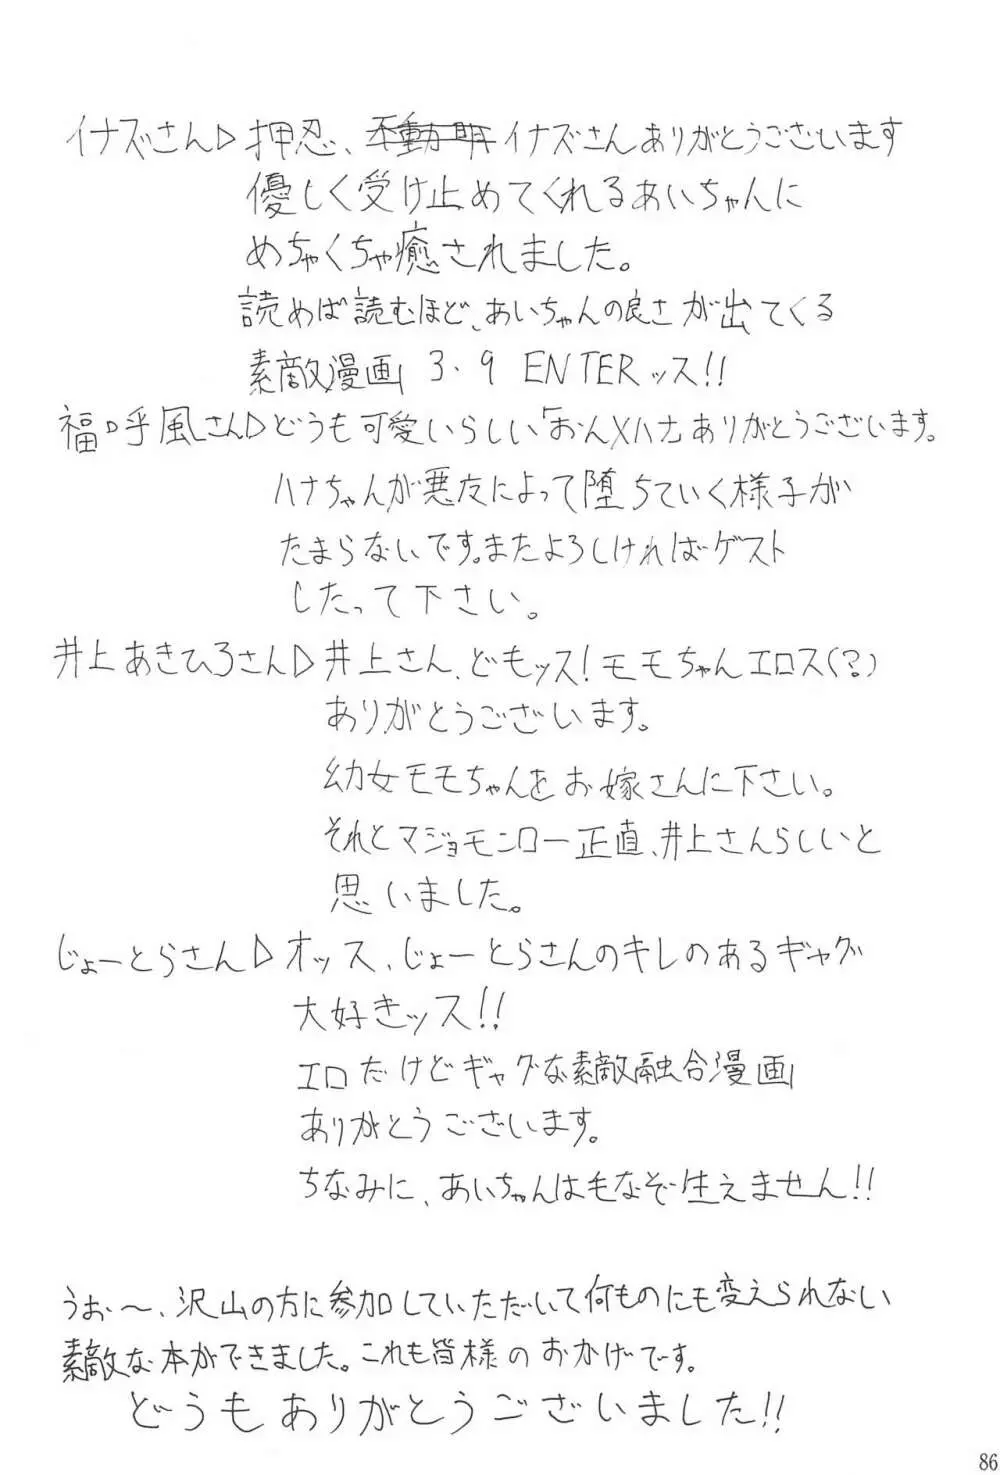 イナズさん▷押忍、不動明イナズさんありがとうございます
優しく受け止めてくれるあいちゃんに
めちゃくちゃ癒されました。
読めば読むほど、あいちゃんの良さが出てくる
素敵漫画 3.9 ENTERッス!!
福呼風さん▷どうも可愛いらしい「おん×ハナ」ありがとうございます。
ハナちゃんが悪友によって堕ちていく様子が
たまらないです。またよろしければゲスト
したって下さい。
井上あきひろさん▷井上さん、どもッス!モモちゃんエロス(?)
ありがとうございます。
幼女モモちゃんをお嫁さんに下さい。
それとマジョモンロー正直、井上さんらしいと
思いました。
じょーとらさん▷オッス、じょーとらさんのキレのあるギャグ
大好きッス!!
エロだけどギャグな素敵融合漫画
ありがとうございます。
ちなみに、あいちゃんは毛なぞ生えません!!
うぉ〜、沢山の方に参加していただいて何ものにも変えられない
素敵な本ができました。これも皆様のおかげです。
どうもありがとうございました!!
86